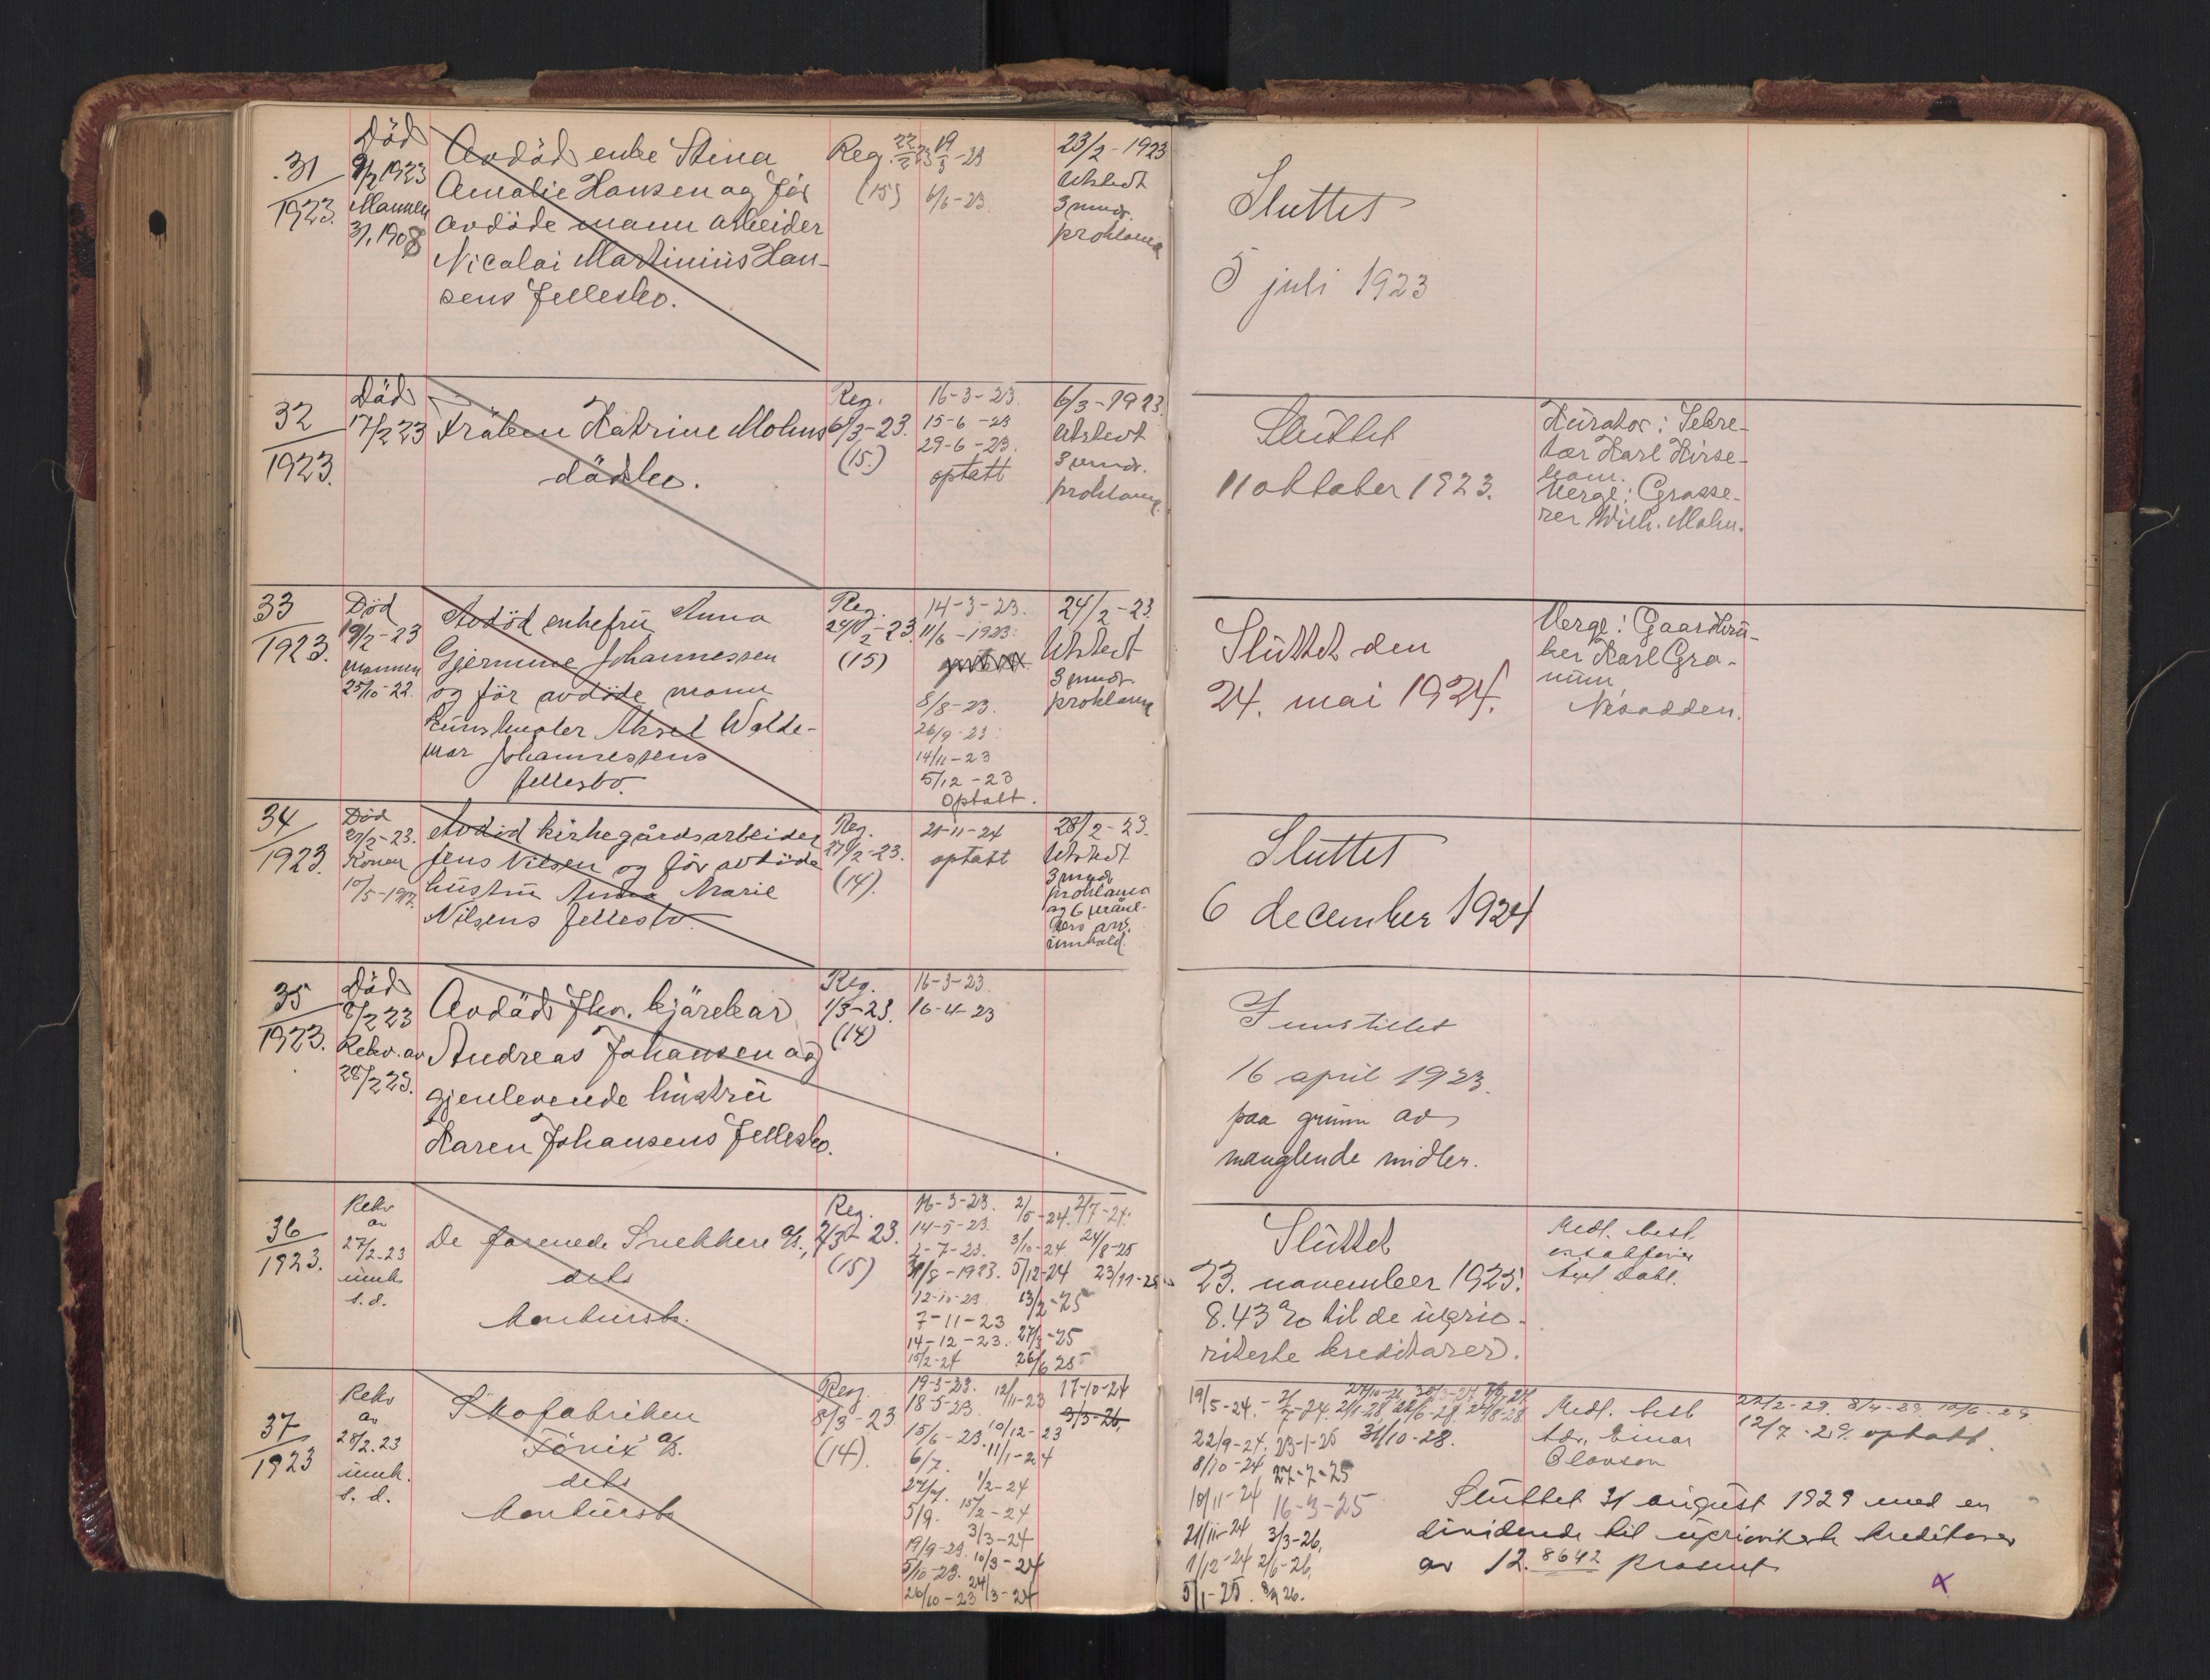 31
1923.
Död
9/2 1923
Mannen
3/1 1908
Avdöd enke Stina
Amalie Hansen og för
avdöde mann arbeider
Nicolai Martinius Han-
sens fellesbo.
Reg. 22/2 23
(15)
19/3-23
6/6-23.
23/2-1923
Utstedt
3 mndr.
proklama
Sluttet
5 juli 1923
32
1923.
Död
17/2 23
Fröken Katrine Mohns
dödsbo.
Reg.
6/3-23.
(15.)
16-3-23.
15-6-23
29-6-23.
optatt
6/3-1923.
Utstedt
3 mndr.
proklama
Sluttet
11 oktober 1923.
Kurator: Sekre-
tær Karl Kirse-
bom.
Verge: Grosse-
rer Wilh. Mohn.
33
1923.
Död
19/2-23
mannen
25/10-22.
Avdöd enkefru Anna
Gjermine Johannessen
og för avdöde mann
Kunstmaler Aksel Walde-
mar Johannessens
fellesbo.
Reg.
24/2-23.
(15)
14-3-23.
11/6-1923.
8/8-23.
26/9-23.
14/11-23
5/12-23
Optatt.
24/2-23.
Utstedt
3 mndr.
proklama
Sluttet den
24. mai 1924.
Verge: Gaardbru-
ker Karl Gra-
num,
Nesodden.
34
1923.
Död
21/2-23.
Konen
10/5-1917.
Avdöd kirkegårdsarbeider
Jens Nilsen og för avdöde
hustru Anna Marie
Nilsens fellesbo.
Reg.
27/2-23.
(14).
21-11-24
optatt
28/2-23.
Utstedt
3 mndr
proklama
og 6
innkald.
Sluttet
6 december 1924
35
1923.
Död
8/2 23
Rekv. av
28/2 23.
Avdöd fhv. kjörekar
Andreas Johansen og
gjenlevende hustru
Karen Johansens fellesbo.
Reg.
1/3-23.
(14)
16-3-23.
16-4-23
Innstillet
16 april 1923.
paa grunn av
manglende midler.
36
1923.
Rekv
av
27/2-23
innk.
s. d.
De forenede Snekkere A/S.,
dets
konkursbo.
Reg.
2/3-23.
(15)
16-3-23.
14-5-23.
2-7-23.
31/8-1923.
12-10-23
7-11-23
14-12-23.
15/2-24
2/5-24.
3/10-24
5/12-24
13/2-25
27/3-25
26/6 25
2/7-24.
24/8-25
23/11-25
Sluttet
23. november 1925.
8.43 % til de uprio-
riterte kreditorer.
Medl. best.
o.r.sakförer
Axel Dahl.
37
1923
Rekv
av
28/2.23
innk.
s. d.
Skofabriken
Fönix A/S.
dets
konkursbo
Reg.
8/3-23
(14).
19-3-23.
18-5-23.
15/6-23.
6/7.
5/9.
19/9-23.
5/10-23.
26/10-23
12/11-23
10/12-23
11/1-24
1/2-24
15/2-24
3/3-24
10/3-24
24/3-24
17-10-24
3/3-26,
19/5-24.
22/9-24.
8/10-24
10/11-24
21/11-24
1/12-24
5/1-25.
23-1-25
27-2-25
16-3-25
3/3-26,
2/6-26,
31/10-28.
Medl. best
Adv. Einar
Olavson
22/2-29. 8/4-29 10/6-29
12/7-29. optatt.
Sluttet 31 august 1929 med en
dividende til uprioriterte kreditorer
av 12.8642 prosent
x